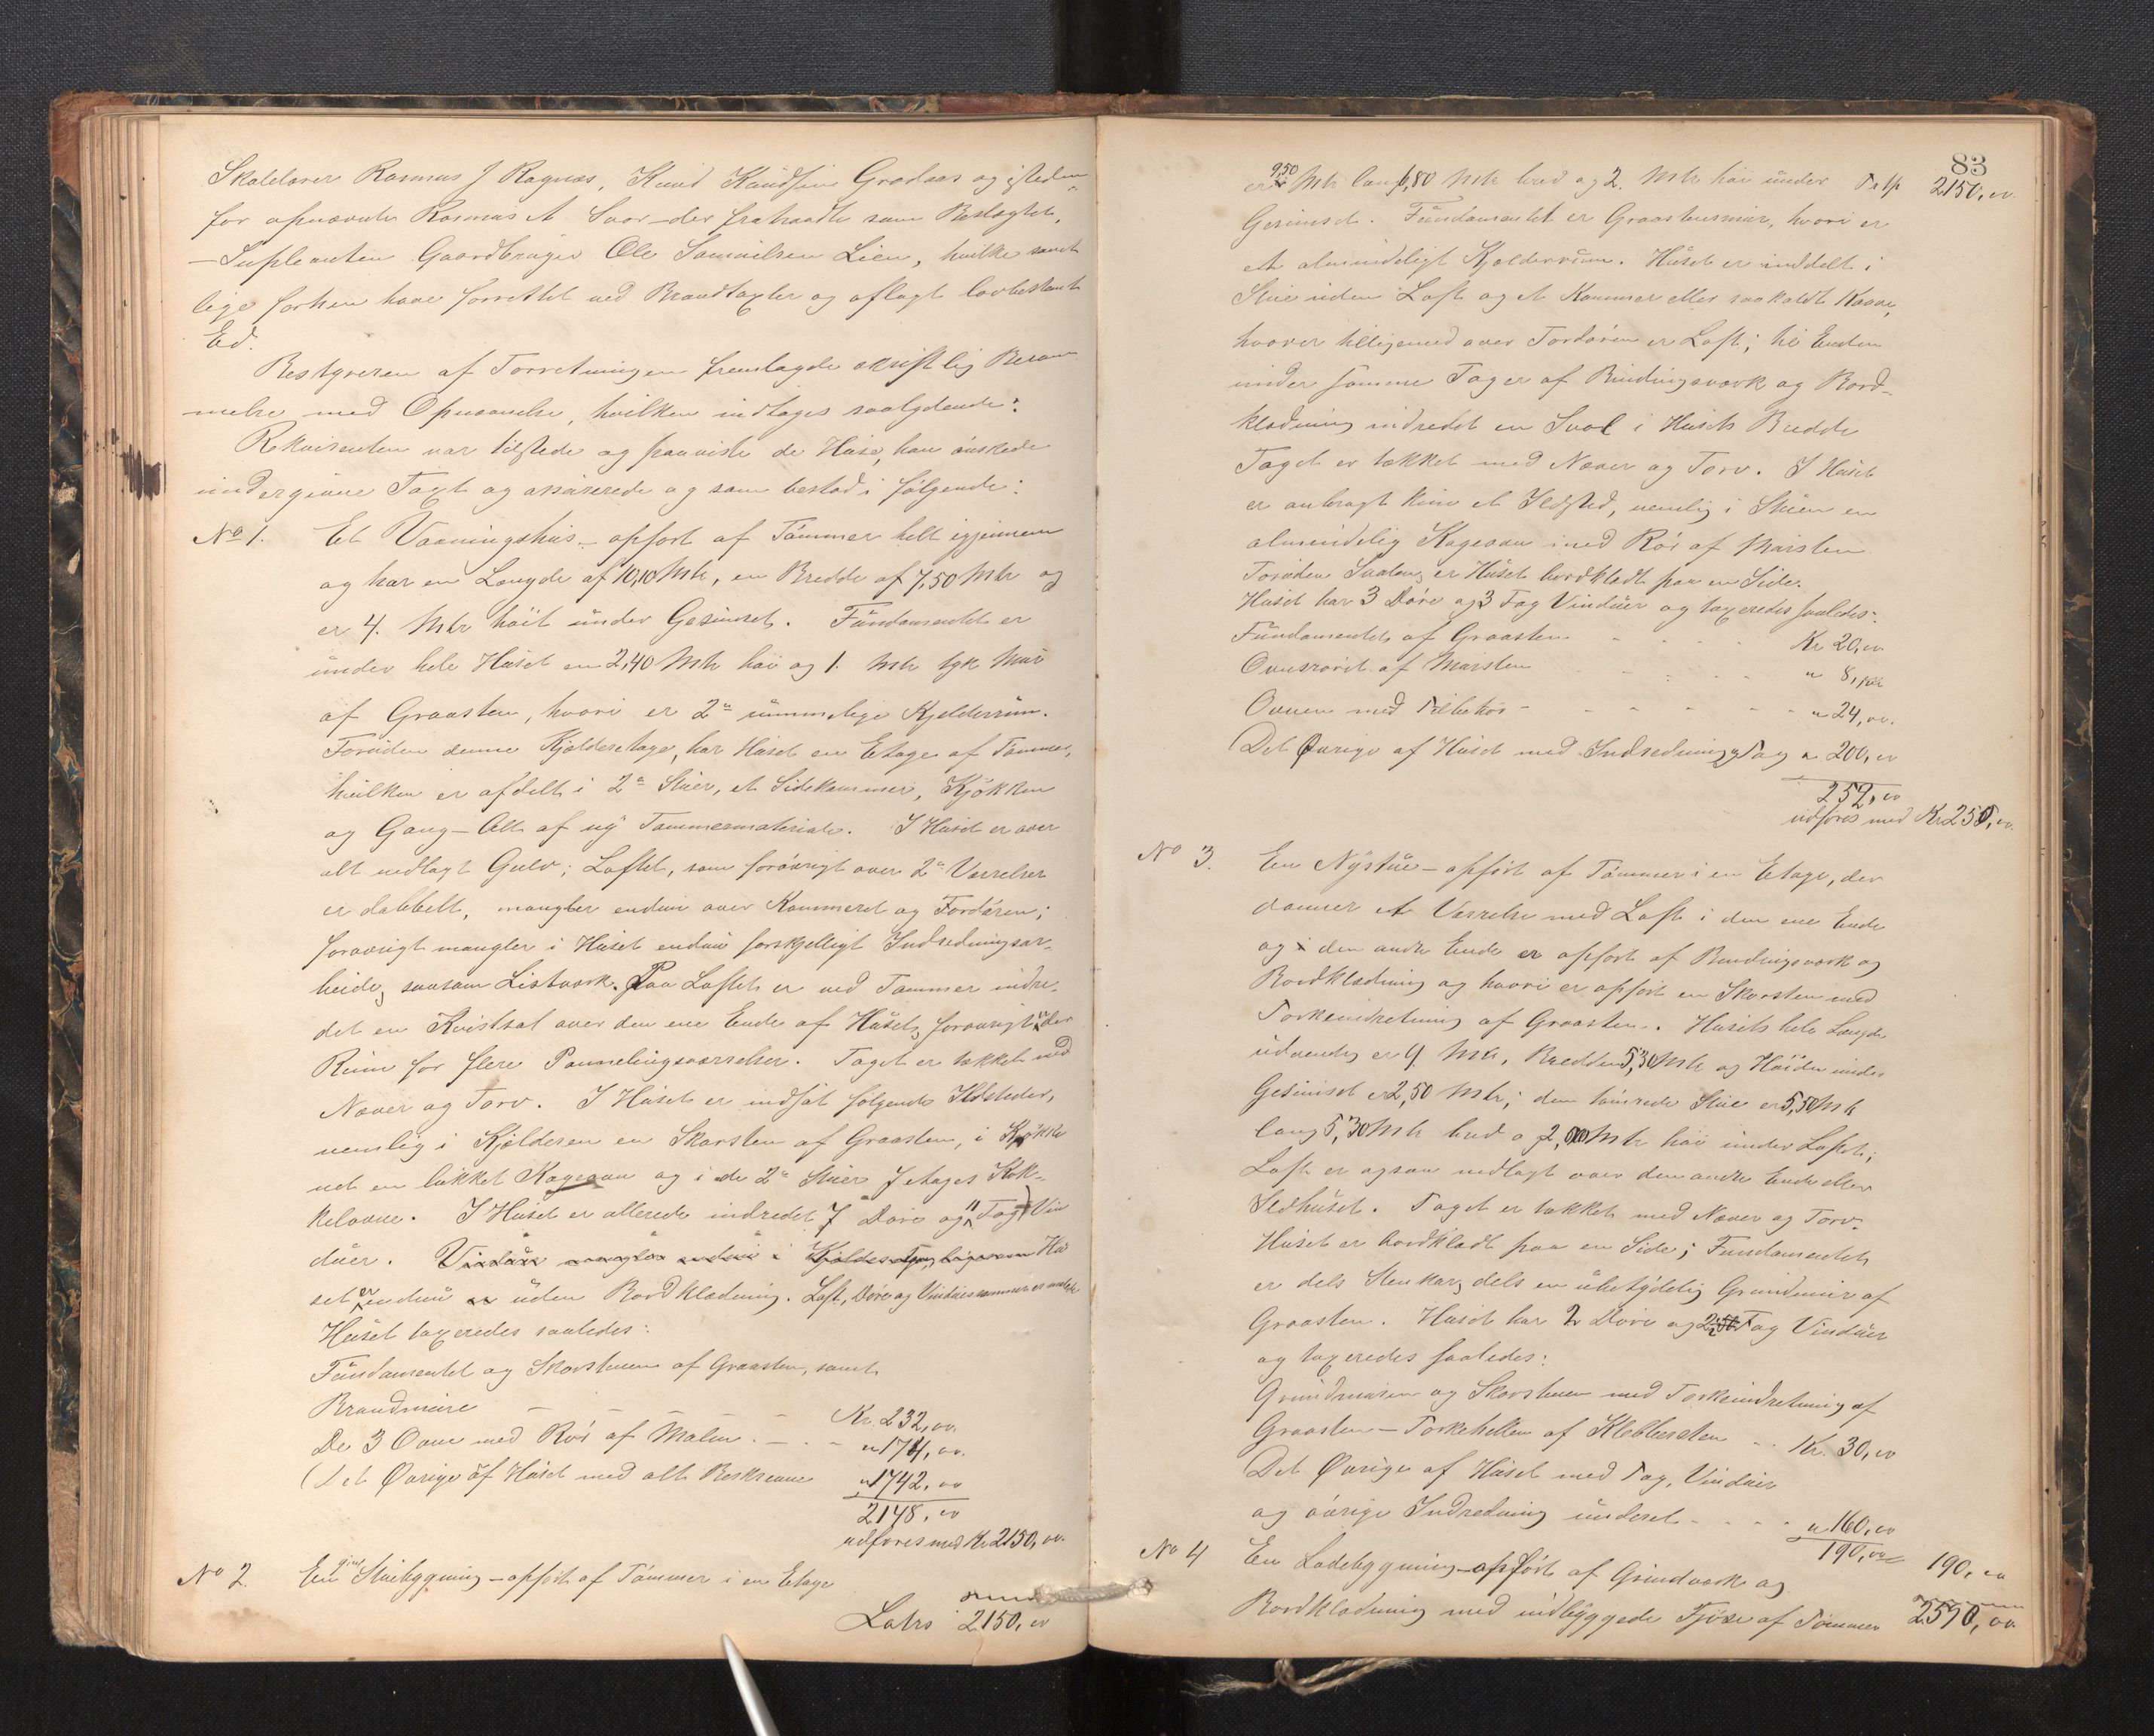 Skolelærer Rasmus J Ragnæs, Knud Knudsen Grodaas og isteden-
for opnævnte Rasmus A Svor – der frahandte som Beslægtet,
– Supleanten Gaardbruger Ole Samuelsen Lien, hvilke samt
lige forhen have forrettet ved Brandtaxter og aflagt lovbestemt
Ed.
Bestyreren af Forretningen fremlagde skriftlig Beram
melse med Opnævnelse, hvilken indtages saalydende:
Rekvirenten var tilstede og paaviste de Huse, han ønskede
undergivne Taxt og assurerede og som bestod i følgende:
No 1. Et Vaaningshus – opført af Tømmer helt igjennem
og har en Længde af 10,10 Mtr, en Bredde af 7,50 Mtr og
er 4. Mtr høit under Gesimset. Fundamentet er
under hele Huset en 2,40 Mtr høi og 1. Mtr tyk Mur
af Graasten, hvori er 2de rummelige Kjelderrum.
Foruden denne Kjelderetage, har Huset en Etage af Tømmer,
hvilken er afdelt i 2de Stuer, et Sidekammer, Kjøkken
og Gang – Alt af ny Tømmermateriale. I Huset er over
alt nedlagt Gulv; Loftet, som forøvrigt over 2de Værelser
er dobbelt, mangler endnu over Kammeret og Fordøren;
forøvrigt mangler i Huset endnu forskjelligt Indredningsar-
beide, saasom Listværk. Paa Loftet er ved Tømmer indre-
det en Kvistsal over den ene Ende af Huset, forøvrigt er der
Rum for flere Pannelingsværelser. Taget er tækket med
Næver og Torv. I Huset er indsat følgende Ildsteder,
nemlig i Kjelderen en Skorsten af Graasten, i Kjøkke
net en lukket Kogeovn og i de 2de Stuer Jetages Kok-
kelovne. I Huset er allerede indredet 7 Døre og 11 Fag Vin
duer. Vinduer mangler endnu i Kjelderetagen, ligesom Hu
set er endnu er uden Bordklædning. Loft, Døre og Vinduesrammer er malet
Huset taxeredes saaledes:
Fundamentet og Skorstenen af Graasten, samt
Brandmure – – – – – Kr. 232,00.
De 3 Ovne med Rør af Malm. – . – " 174,00.
Det Øvrige af Huset med alt Beskrevne " 1742,00
2148,00
udføres med Kr 2150,00.
No 2. En Stuebygning – opført af Tømmer i en Etage
Latrs 2150,00
83
er 9,50 Mtr lang 6,80 Mtr bred og 2. Mtr høi under Trsp 2150,00.
Gesimset. Fundamentet er Graastensmur, hvori er
et almindeligt Kjelderrum. Huset er inddelt i
Stue uden Loft og et Kammer eller saakaldt Kove,
hvorover tilligemed over Fordøren er Loft; til Enden
under samme Tag er af Bindingsværk og Bord-
klædning indredet en Sval i Husets Bredde
Taget er tækket med Næver og Torv. I Huset
er anbragt kun et Ildsted, nemlig i Stuen en
almindelig Kogeovn med Rør af Mursten.
Foruden Svalen, er Huset bordklædt paa en Side.
Huset har 3 Døre og 3 Fag Vinduer og taxeredes saaledes:
Fundamentet af Graasten – – – Kr 20,00
Ovnsrøret af Mursten – – – – " 8,00
Ovnen med Tilbehør – – – – – " 24,00.
Det Øvrige af Huset med Indredning og Tag " 200,00
252,00
udføres med Kr 250,00.
No 3. En Nystue – opført af Tømmer i en Etage, der
danner et Værelse med Loft i den ene Ende
og i den andre Ende er opført af Bindingsværk og
Bordklædning og hvori er opført en Skorsten med
Tørkeindretning af Graasten. Husets hele Længde
udvendig er 9 Mtr, Bredden 5,30 Mtr og Høiden under
Gesimset er 2,50 Mtr; den tømrede Stue er 5,50 Mtr
lang 5,30 Mtr bred og 2,00 Mtr høi under Loftet;
Loft er ogsaa nedlagt over den andre Ende eller
Ildhuset. Taget er tækket med Næver og Torv.
Huset er bordklædt paa en Side; Fundamentet
er dels Stenkar, dels en ubetydelig Grundmur af
Graasten. Huset har 2 Døre og 2 Fag Vinduer
og taxeredes saaledes:
Grundmuren og Skorstenen med Tørkeindretning af
Graasten – Tørkehellen af Klebbersten . . Kr. 30,00
Det Øvrige af Huset med Tag, Vinduer
og øvrige Indredning underet – . . . " 160,00
190,00 190,00
No 4 En Ladebygning – opført af Grindværk og
Bordklædning med indbyggede Fjøse af Tømmer 2590,00.